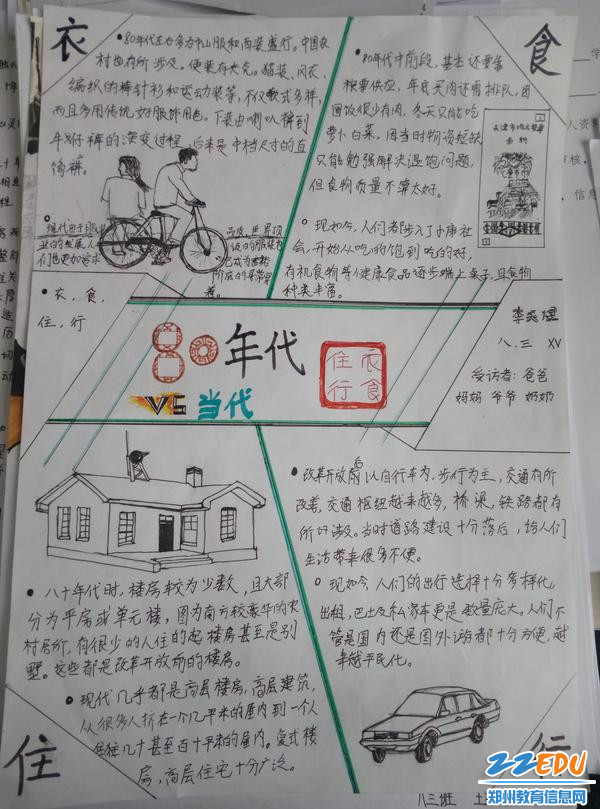 衣
• 80年代左右多为中山服和西装盛行。中国农
村也有所涉及。便装有夹克。猎装、风衣、
编织的裤针衫和运动装等,不仅款式多样,
而且多用传统好服饰用色。下装由喇叭裤到
牛仔裤的演变过程,后来是中档尺寸的直
筒裤。
• 现代由于服装
业的发展,人
们也更加追求
品质,世界顶
级的服装也
已成为
阶层的寻常穿
着。
食
• 80年代中前段,基本还要靠
粮票供应,年底买肉还需排队,团
圆饭很少有肉,冬天只能吃
萝卜白菜,因当时物资短缺,
只能勉强解决温饱问题,
但食物质量不算太好。
• 现如今,人们都步入了小康社
会,开始从吃的饱到吃的好,
有机食物等健康食品逐步端上桌子,且食物
种类丰富。
• 衣,食,
住,行
80年代
VS 当代
衣食
住行
八.三 XV
受访者:爸爸
妈妈 爷爷 奶奶
• 八十年代时,楼房较为少数,且大部
分为平房或单元楼,图为南方较豪华的农
村居所,有很少的人住的起楼房甚至是别
墅。这些都是改革开放前的楼房。
• 现代几乎都是高层楼房,高层建筑,
从很多人挤在一个几平米的屋内到一个人
住几十甚至百十平米的屋内。复式楼
房,高层住宅十分广泛。
住
• 改革开放前以自行车为,步行为主,交通有所
改善,交通枢纽越来越多,桥梁,铁路都有
所涉及。当时道路建设十分落后,给人们
生活带来很多不便。
• 现如今,人们的出行选择十分多样化,
出租,巴士及私家车更是数量庞大。人们不
管是国内还是国外访游都十分方便,越
来越平民化。
行
八三班
ZZEDU
郑州教育信息网